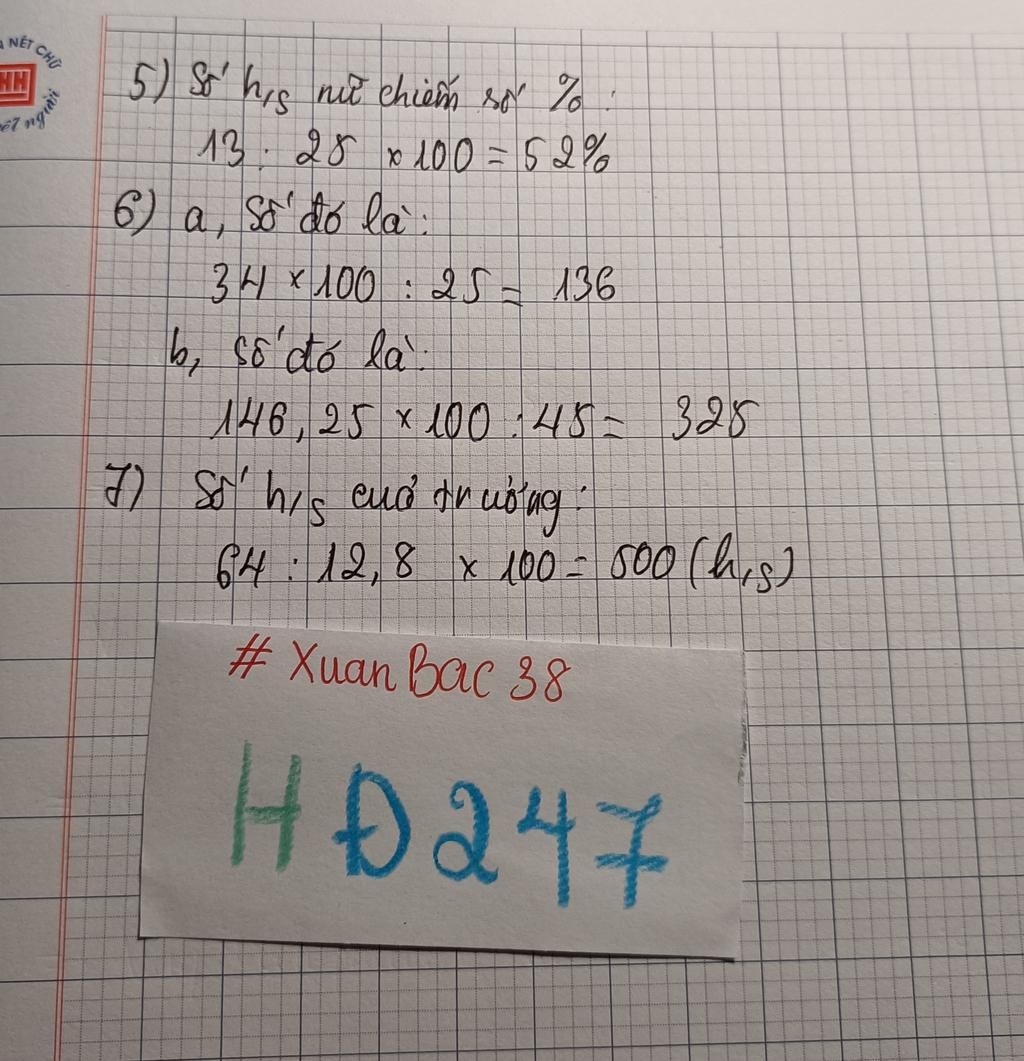 NÉT CHỮ
HH
nết người
5) Số h,s nữ chiếm số % :
13 : 25 × 100 = 52%
6) a, Số đó là :
34 × 100 : 25 = 136
b, số đó là :
146,25 × 100 : 45 = 325
7) Số h,s cuả trường :
64 : 12,8 × 100 = 500 (h,s)
# Xuan Bac 38
HĐ247